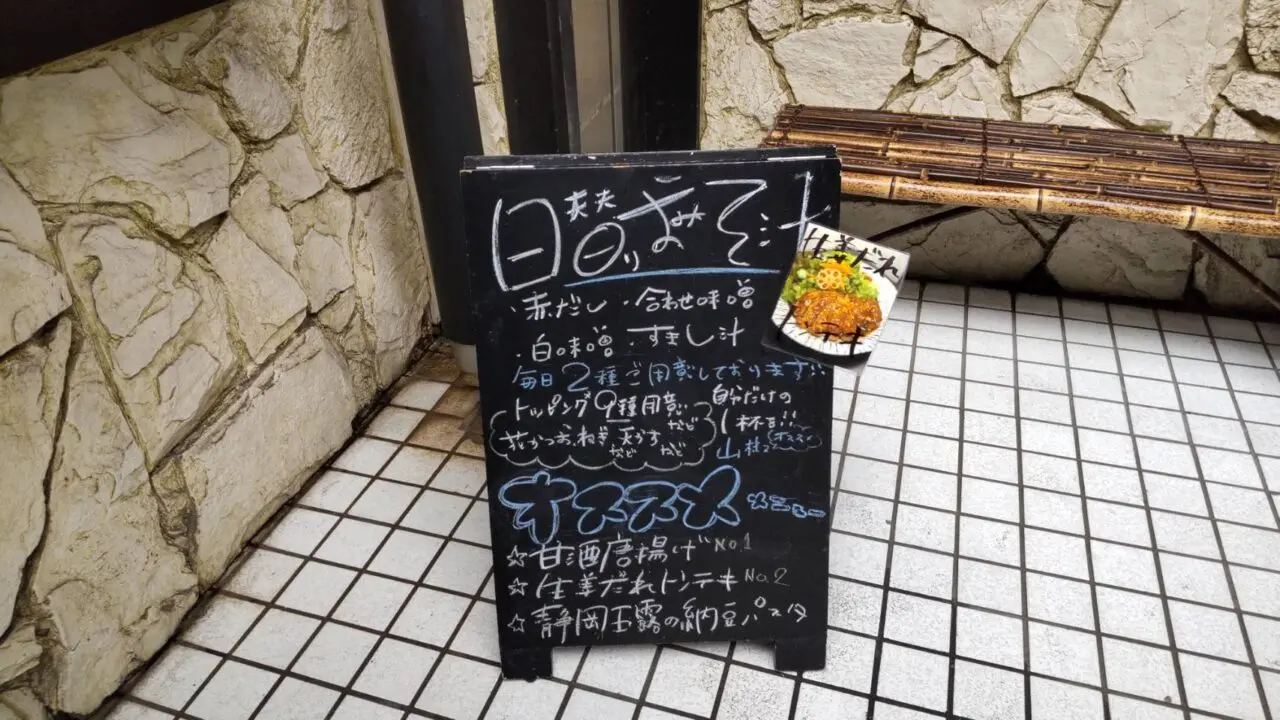 日替りみそ汁
・赤だし ・合わせ味噌
・白味噌 ・すまし汁
毎日2種ご用意しております!!
トッピング9種用意
花かつお、ねぎ、天かす
などなど
自分だけの
1杯を!!
山椒
オススメ
オススメ メニュー
☆甘酒唐揚げ No.1
☆生姜だれトンテキ No.2
☆静岡玉露の納豆パスタ
生姜だれ